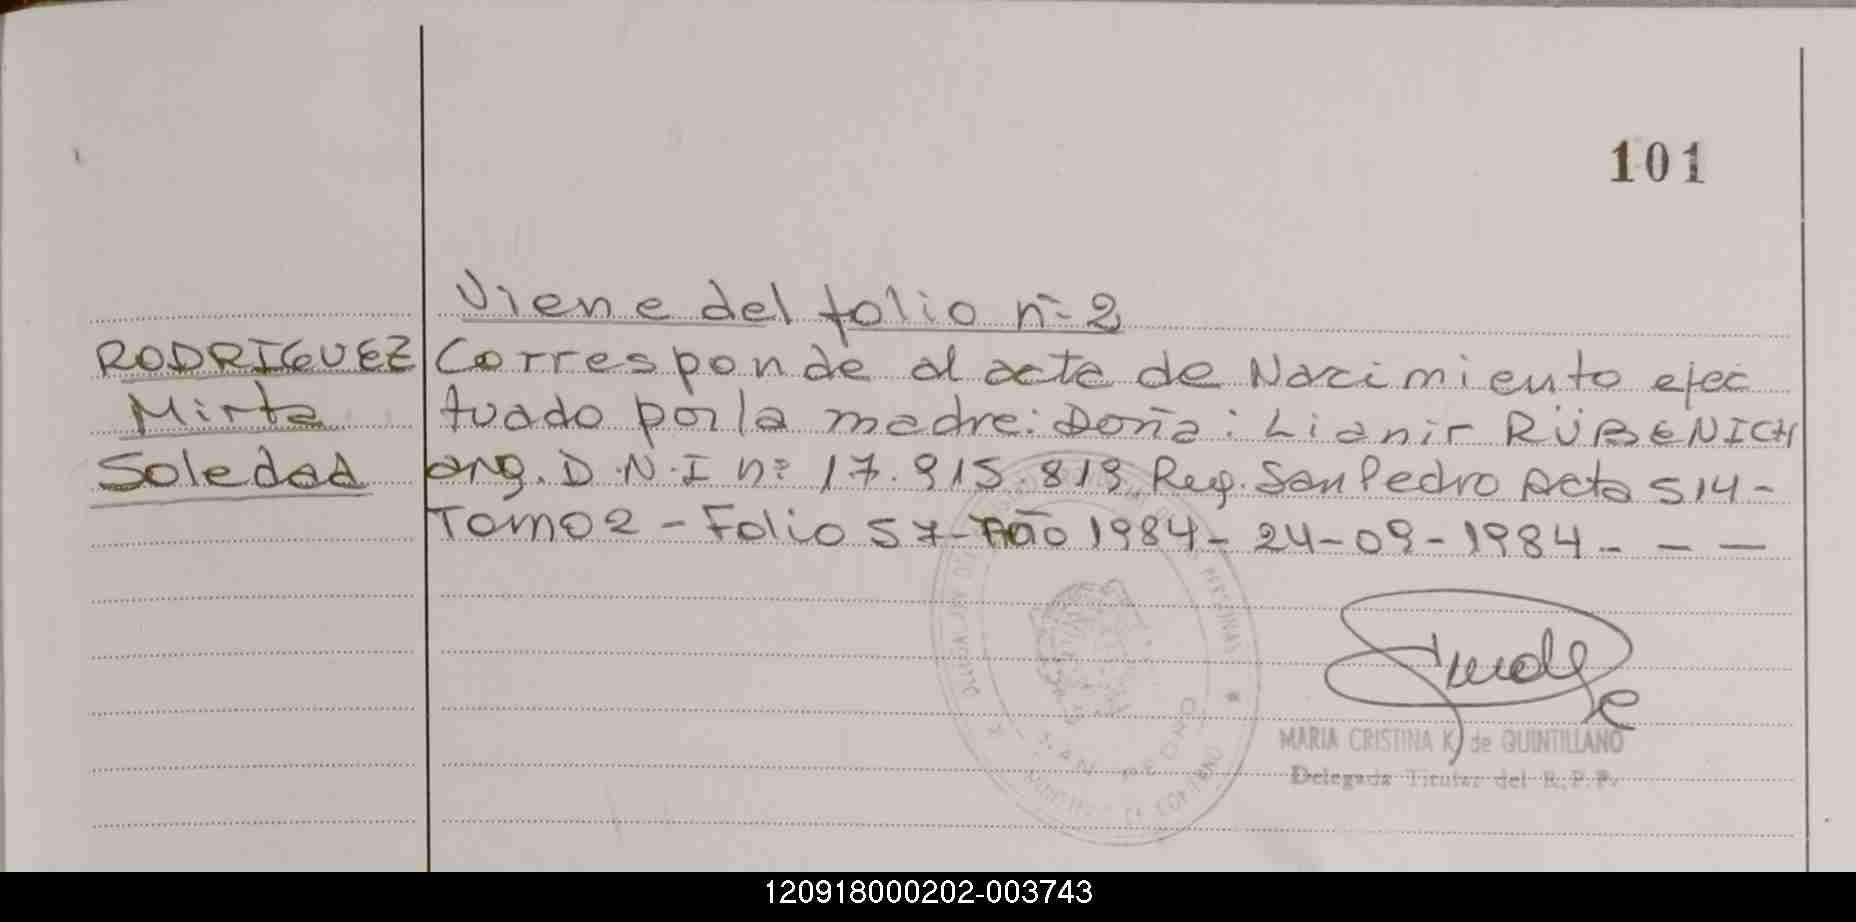 101
Viene del folio nº 2
RODRIGUEZ Corresponde al acta de Nacimiento efec
Mirta tuado por la madre: Doña: Lianir RÜBENICH
Soledad arg. D.N.I nº 17.915.819, Reg. San Pedro Acta 514-
Tomo 2 - Folio 57 - Año 1984 - 24-09-1984 - - -
MARIA CRISTINA K. de QUINTILLANO
Delegada Titular del R.P.P.
SAN PEDRO
120918000202-003743